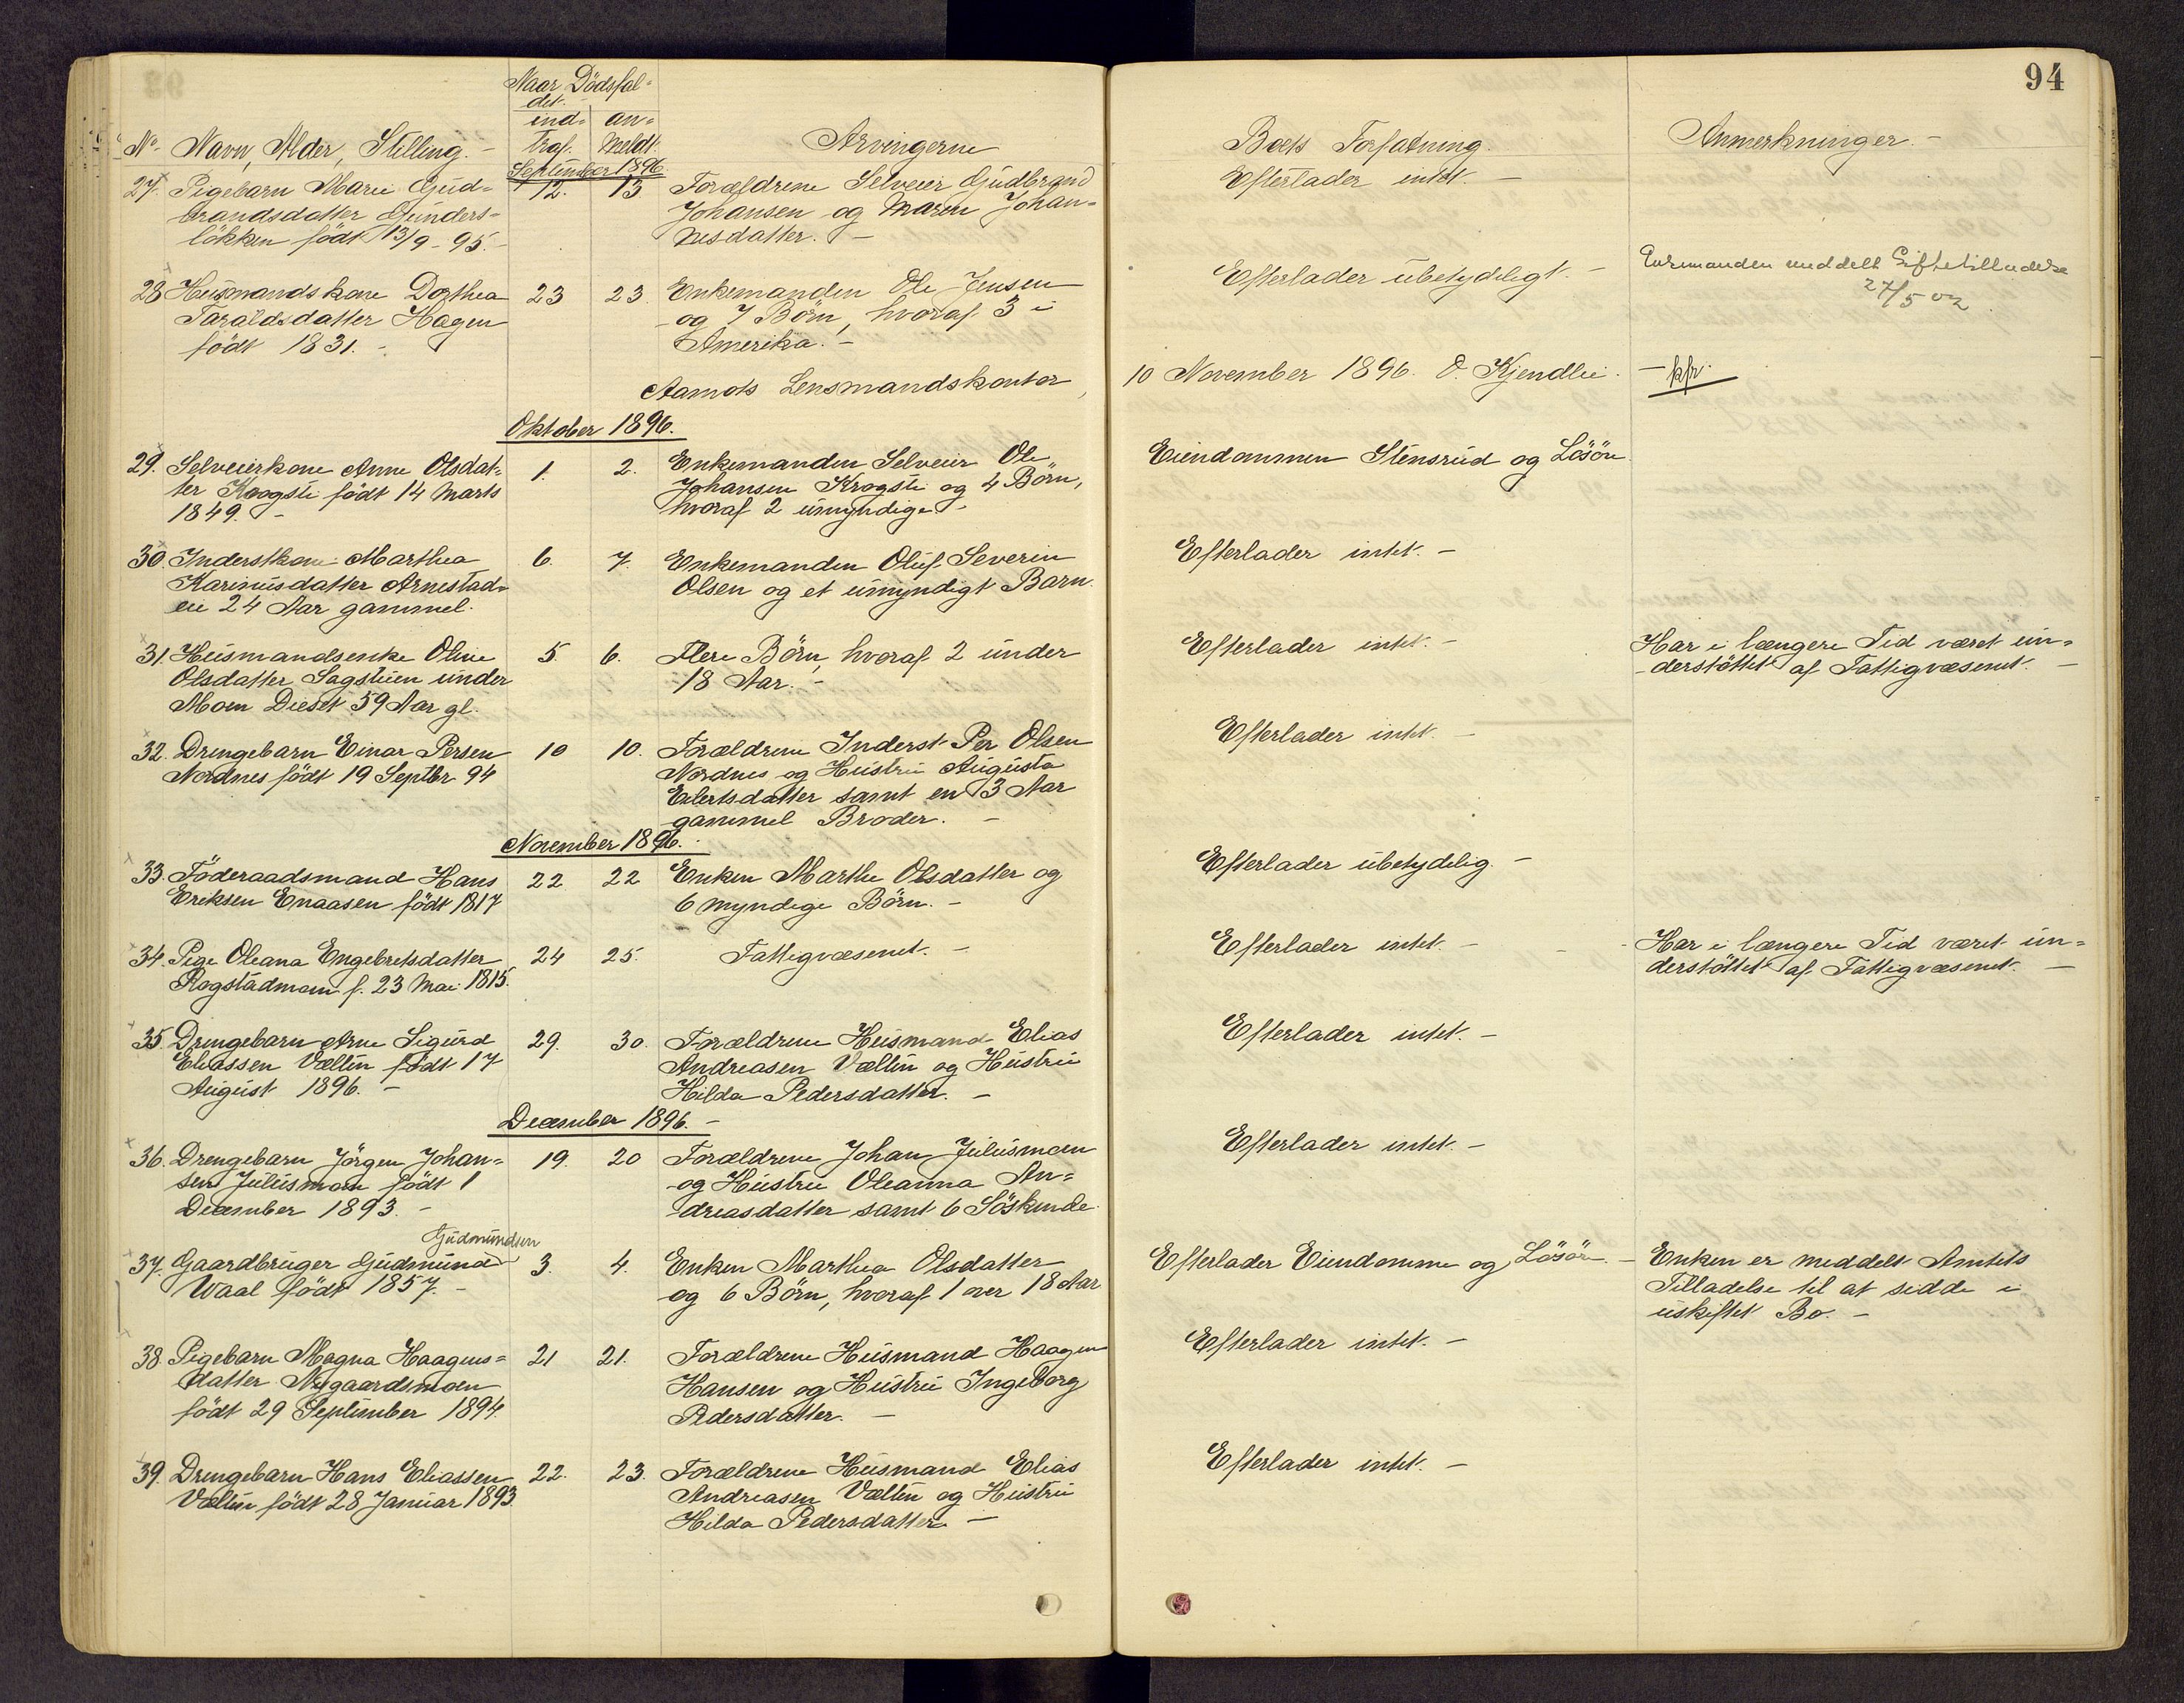 94
Naar Dödsfal=
det
ind= an=
No. Navn, Alder, Stilling. traf. meldt. Arvingerne Boets Forfatning. Anmerkninger.
September 1896
27. Pigebarn Marie Gud= 12. 13 Forældrene Selveier Gudbrand Efterlader intet.
brandsdatter Gunders= Johansen og Maren Johan=
lökken födt 13/9-95. nesdatter.
28 Husmandskone Dorthea 23 23. Enkemanden Ole Jensen Efterlader ubetydeligt. Enkemanden meddelt Giftetilladelse
Taraldsdatter Hagen og 7 Börn, hvoraf 3 i 27/5 02
födt 1831. Amerika.
Aamots Lensmandskontor, 10 November 1896. O. Kjendlie. kfr.
Oktober 1896.
29. Selveierkone Anne Olsdat= 1. 2. Enkemanden Selveier Ole Eiendommen Stensrud og Lösöre
ter Krogsti födt 14 Marts Johansen Krogsti og 4 Börn,
1849. hvoraf 2 umyndige.
30. Inderstkone Marthea 6. 7. Enkemanden Oluf Severin Efterlader intet.
Karinusdatter Arnestad= Olsen og et umyndigt Barn
eie 24 Aar gammel.
31. Husmandsenke Oline 5. 6. Flere Börn, hvoraf 2 under Efterlader intet. Har i længere Tid været un=
Olsdatter Sagstuen under 18 Aar. derstöttet af Fattigvæsenet.
Moen Deset 59 Aar gl.
32. Drengebarn Einar Persen 10 10. Forældrene Inderst Per Olsen Efterlader intet.
Nordnes födt 19 Septbr 94 Nordnes og Hustru Augusta
Eilertsdatter samt en 3 Aar
gammel Broder.
November 1896.
33. Föderaadsmand Hans 22 22 Enken Marthe Olsdatter og Efterlader ubetydelig.
Eriksen Enaasen födt 1817 6 myndige Börn.
34. Pige Oleana Engebretsdatter 24 25. Fattigvæsenet. Efterlader intet. Har i længere Tid været un=
Rogstadmoen f. 23 Mai 1815. derstöttet af Fattigvæsenet.
35. Drengebarn Arne Sigurd 29. 30. Forældrene Husmand Elias Efterlader intet.
Eliassen Væltin födt 17 Andreasen Væltin og Hustru
August 1896. Hilda Pedersdatter.
December 1896.
36. Drengebarn Jörgen Johan= 19. 20 Forældrene Johan Juliusmoen Efterlader intet.
sen Juliusmoen födt 1 og Hustru Oleanna An=
December 1893. dreasdatter samt 6 Söskende
Gudmundsen
37. Gaardbruger Gudmund 3. 4. Enken Marthea Olsdatter Efterlader Eiendomme og Lösöre. Enken er meddelt Amtets
Waal födt 1857. og 6 Börn, hvoraf 1 over 18 Aar Tilladelse til at sidde i
uskiftet Bo.
38. Pigebarn Magna Haagens= 21 21. Forældrene Husmand Haagen Efterlader intet.
datter Nygaardsmoen Hansen og Hustru Ingeborg
födt 29 September 1894. Pedersdatter.
39. Drengebarn Hans Eliassen 22. 23. Forældrene Husmand Elias Efterlader intet.
Væltin födt 28 Januar 1893 Andreasen Væltin og Hustru
Hilda Pedersdatter